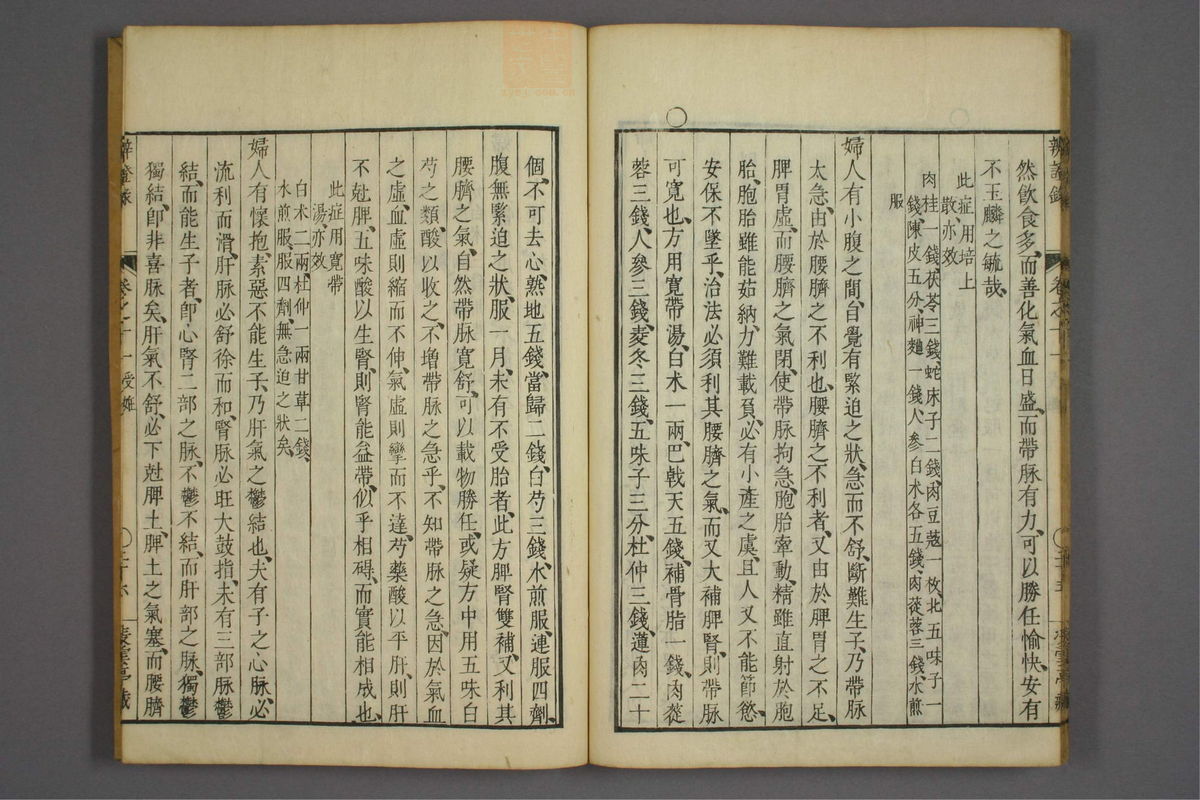 辨證錄
卷之十一
然飲食多、而善化氣血日盛、而帶脉有力、可以勝任愉快、安有
不玉麟之毓哉、
此症用培土
散、亦效
肉桂一錢、茯苓三錢、蛇床子二錢、肉豆蔻一枚、北五味子一
錢、陳皮五分、神麯一錢、人參白术各五錢、肉蓯蓉三錢、水煎
服
婦人有小腹之間、自覺有緊迫之狀、急而不舒、斷難生子、乃帶脉
太急、由於腰臍之不利也、腰臍之不利者、又由於脾胃之不足、
脾胃虛、而腰臍之氣閉、使帶脉拘急、胞胎牽動、精雖直射於胞
胎、胞胎雖能茹納、力難載負、必有小產之虞、且人又不能節慾、
安保不墜乎、治法必須利其腰臍之氣、而又大補脾腎、則帶脉
可寬也、方用寬帶湯、白术一兩、巴戟天五錢、補骨脂一錢、肉蓯
蓉三錢、人參三錢、麥冬三錢、五味子三分、杜仲三錢、蓮肉二十
個、不可去心、熟地五錢、當歸二錢、白芍三錢、水煎服、連服四劑、
腹無緊迫之狀、服一月、未有不受胎者、此方脾腎雙補、又利其
腰臍之氣、自然帶脉寬舒、可以載物勝任、或疑方中用五味白
芍之類、酸以收之、不增帶脉之急乎、不知帶脉之急、因於氣血
之虛、血虛則縮而不伸、氣虛則攣而不達、芍藥酸以平肝、則肝
不尅脾、五味酸以生腎、則腎能益帶、似乎相碍、而實能相成也、
此症用寬帶
湯、亦效
白术二兩、杜仲一兩、甘草二錢、
水煎服、服四劑、無急迫之狀矣、
婦人有懷抱、素惡不能生子、乃肝氣之鬱結也、夫有子之心脉、必
流利而滑、肝脉必舒徐而和、腎脉必旺大鼓指、未有三部脉鬱
結、而能生子者、卽心腎二部之脉、不鬱不結、而肝部之脉、獨鬱
獨結、卽非喜脉矣、肝氣不舒、必下尅脾土、脾土之氣塞、而腰臍
辨證錄
卷之十一 受姙
三十六